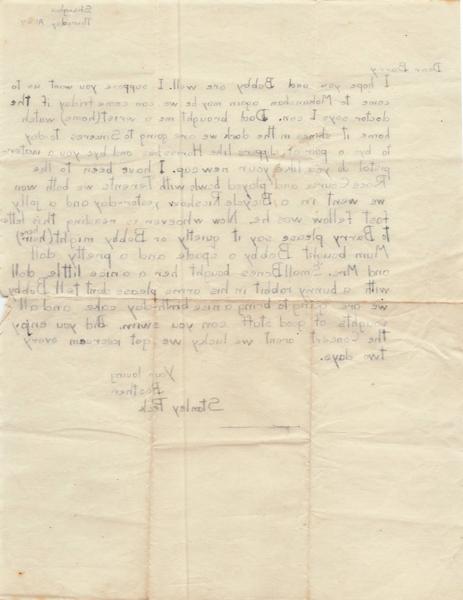 Shanghai
Thursday
Dear Barry
I hope you and Bobby are well. I suppose you want us to
come to Mokanshan again may be we can come friday if the
doctor says I can. Dad brought me a wrist (theme) watch
home it shines in the dark we are going to Sinceres to day
to by a pair of slippers like Harrises and bye you a water-
pistol do you like your new cap. I have been to the
Race Course and played bowls with Terents we both won
we went in a Bicycle Ricshow yesterday and a jolly
fast fellow was he. Now whoever is reading this letter
to Barry please say it quietly or Bobby might (hure) hear
Mum bought Bobby a spade and a pretty doll
and Mrs. Small Bones bought her a nice little doll
with a bunny rabbit in his arms please dont tell Bobby
we are going to bring a nice birthday cake and all
soughts of good stuff can you swim. Did you enjoy
the concert arent we lucky we got icecream every
two days.
Your loving
Brother
Stanley Peck